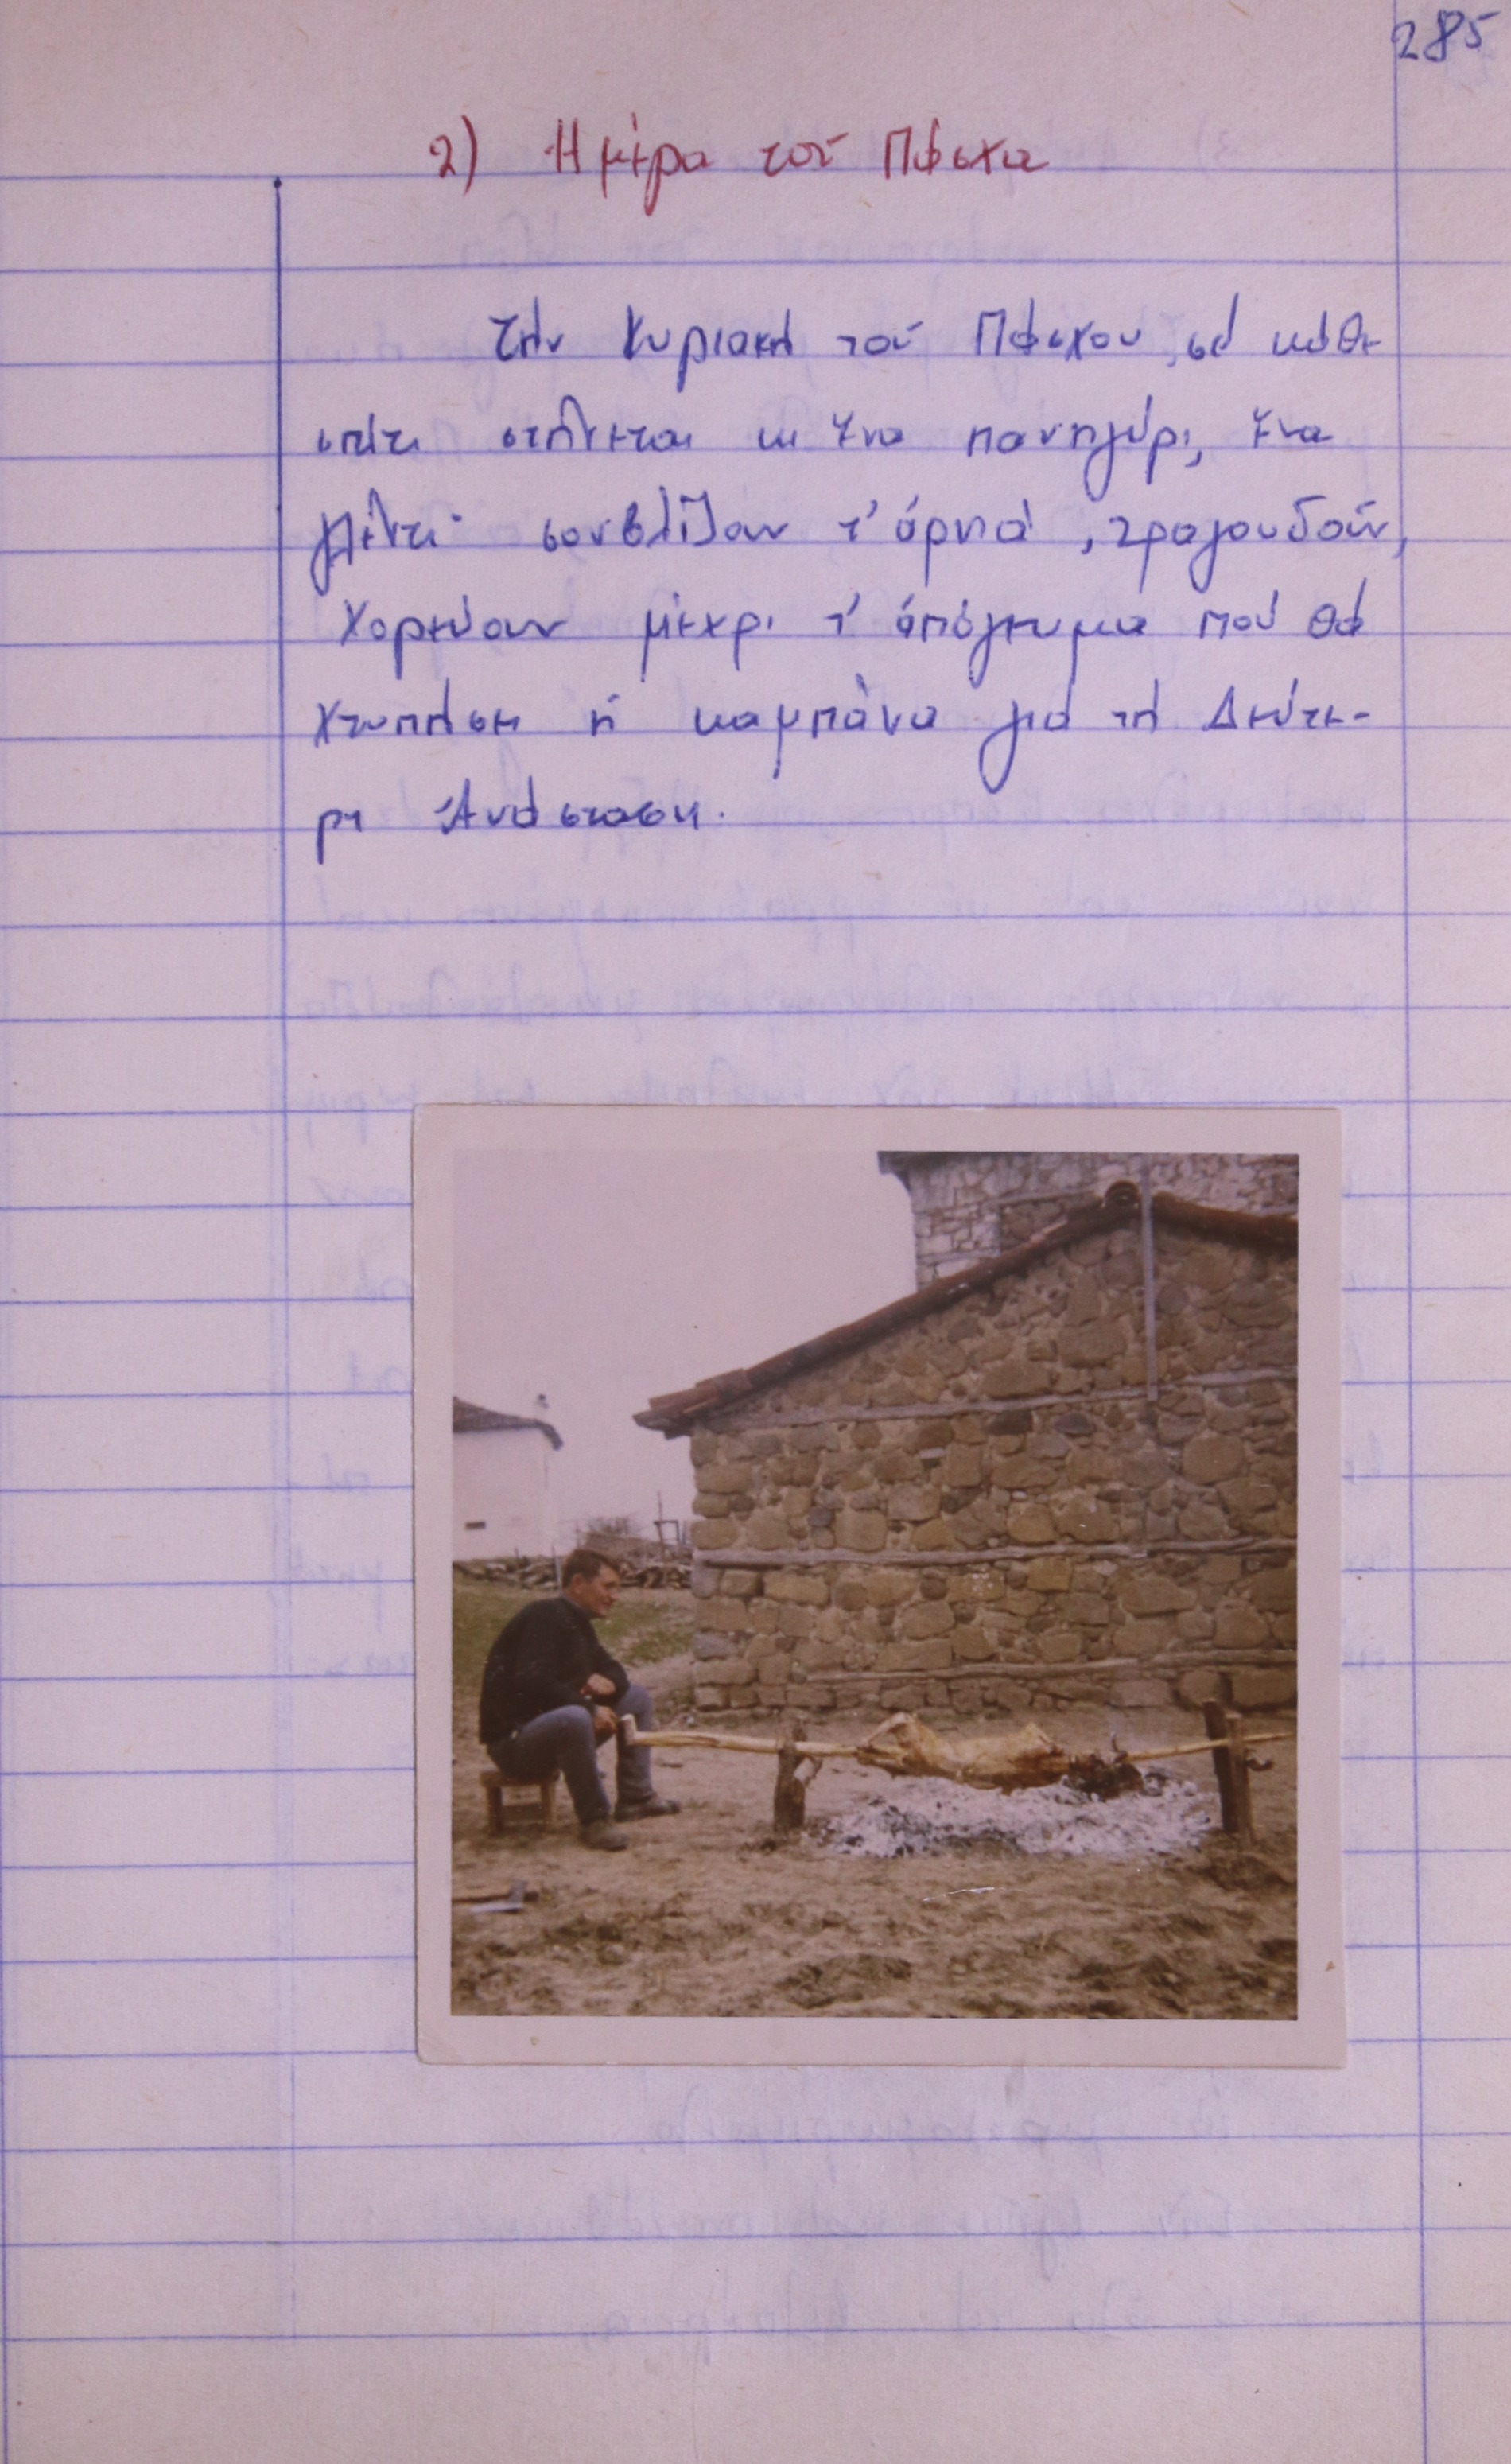 285
2) Ἡ μέρα τοῦ Πάσχα
Τήν Κυριακή τοῦ Πάσχου, σέ κάθε
σπίτι στήνεται κι ἕνα πανηγύρι, ἕνα
γλέντι· σουβλίζουν τ' ἀρνιά, τραγουδοῦν,
χορεύουν μέχρι τ' ἀπόγευμα πού θά
χτυπήσει ἡ καμπάνα γιά τή Δεύτε-
ρη Ἀνάσταση.